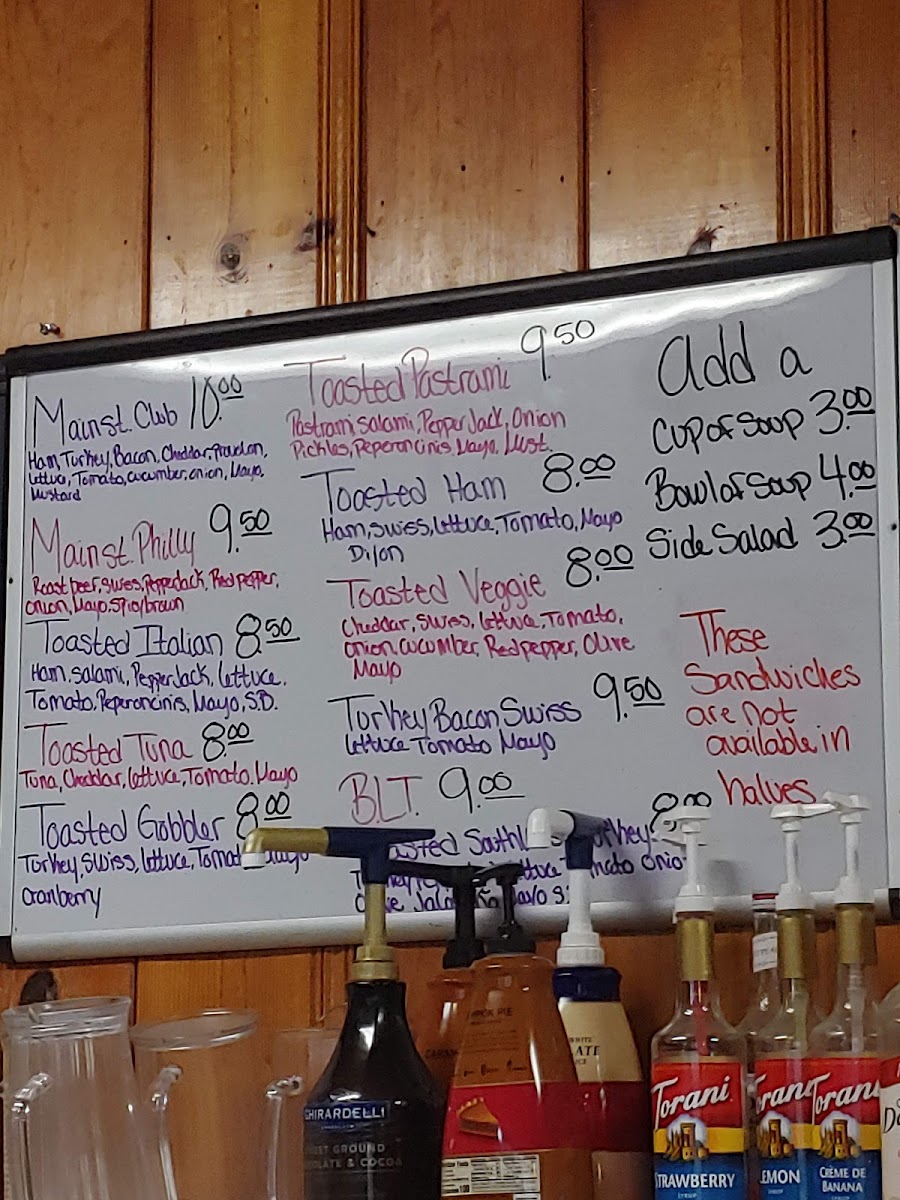 Main st. Club 10.00
Ham, Turkey, Bacon, Cheddar, Provolon,
Lettuce, Tomato, cucumber, onion, Mayo,
Mustard
Main st. Philly 9.50
Roast beef, swiss, Pepperjack, Red pepper,
onion, Mayo, spicy brown
Toasted Italian 8.50
Ham, salami, Pepper Jack, lettuce,
Tomato, Peperoncinis, Mayo, S.B.
Toasted Tuna 8.00
Tuna, Cheddar, lettuce, Tomato, Mayo
Toasted Gobbler 8.00
Turkey, Swiss, lettuce, Tomato Mayo
Cranberry
Toasted Pastrami 9.50
Pastrami, Salami, Pepper Jack, Onion
Pickles, Peperoncinis Mayo, Must.
Toasted Ham 8.00
Ham, Swiss, Lettuce, Tomato, Mayo
Dijon
Toasted Veggie 8.00
Cheddar, Swiss, lettuce, Tomato,
onion, cucumber, Red pepper, Olive
Mayo
Turkey Bacon Swiss 9.50
lettuce Tomato Mayo
BLT. 9.00
Turkey 8.00
Onio
Add a
Cup of Soup 3.00
Bowl of Soup 4.00
Side Salad 3.00
These
Sandwiches
are not
available in
halves
GHIRARDELLI
COCOA
PIE
Torani
STRAWBERRY
SYRUP
Torani
LEMON
SYRUP
Torani
CRÈME DE
BANANA
SYRUP